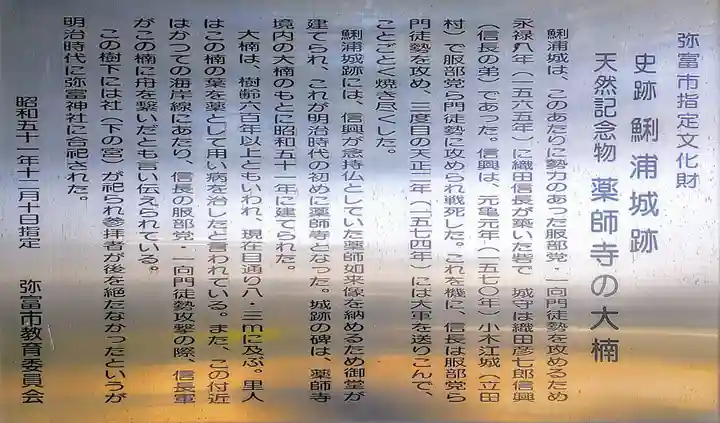 弥富市指定文化財
史跡 鯏浦城跡
天然記念物 薬師寺の大楠
鯏浦城は、このあたりに勢力のあった服部党・一向門徒勢を攻めるため
永禄八年(一五六五年)に織田信長が築いた砦で 城守は織田彦七郎信興
(信長の弟)であった。信興は、元亀元年(一五七〇年)小木江城(立田
村)で服部党ら門徒勢に攻められ戦死した。これを機に、信長は服部党ら
門徒勢を攻め、三度目の天正二年(一五七四年)には大軍を送りこんで、
ことごとく焼き尽くした。
鯏浦城跡には、信興が念持仏としていた薬師如来像を納めるため御堂が
建てられ、これが明治時代の初めに薬師寺となった。城跡の碑は、薬師寺
境内の大楠のもとに昭和五十一年に建てられた。
大楠は、樹齢六百年以上ともいわれ、現在目通り八・三mに及ぶ。里人
はこの楠の葉を薬として用い病を治したと言われている。また、この付近
はかつての海岸線にあたり、信長の服部党・一向門徒勢攻撃の際、信長軍
がこの楠に舟を繋いだとも言い伝えられている。
この樹下には社(下の宮)が祀られ参拝者が後を絶たなかったというが
明治時代に弥富神社に合祀された。
昭和五十一年十二月十日指定
弥富市教育委員会